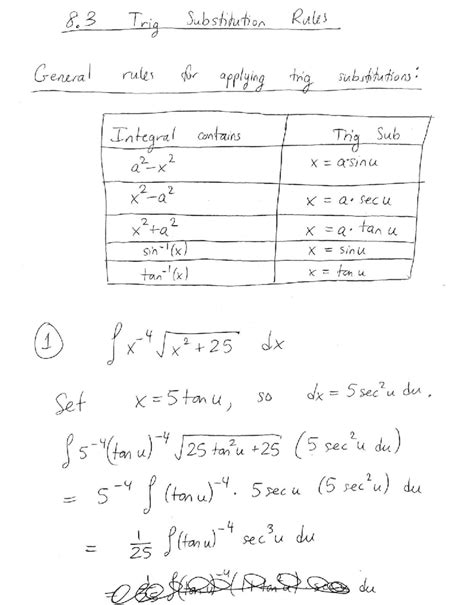 8.3 Trig Substitution Rules
General rules for applying trig substitutions:
Integral contains Trig Sub
a²-x² x = a·sin u
x²-a² x = a · sec u
x²+a² x = a · tan u
sin⁻¹(x) x = sin u
tan⁻¹(x) x = tan u
① ∫ x⁻⁴ √(x² + 25) dx
Set x = 5 tan u, so dx = 5 sec² u du.
∫ 5⁻⁴ (tan u)⁻⁴ √(25 tan² u + 25) (5 sec² u du)
= 5⁻⁴ ∫ (tan u)⁻⁴ · 5 sec u (5 sec² u) du
= 1/25 ∫ (tan u)⁻⁴ sec³ u du
du